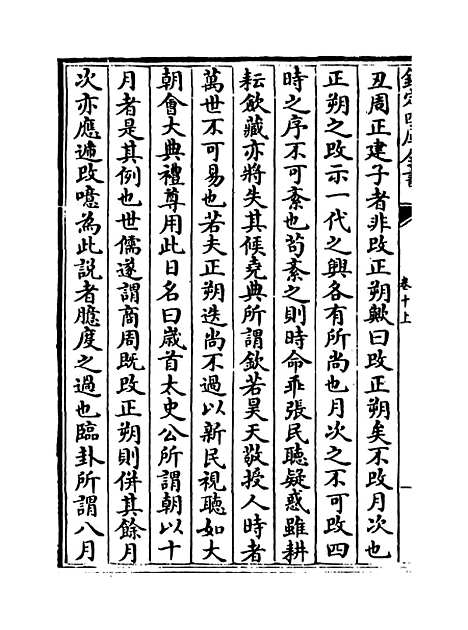 欽定四庫全書
卷十上
丑周正建子者非改正朔歟曰改正朔矣不改月次也
正朔之改示一代之興各有所尚也月次之不可改四
時之序不可紊也苟紊之則時命乖張民聽疑惑雖耕
耘飲藏亦將失其候堯典所謂欽若昊天敬授人時者
萬世不可易也若夫正朔迭尚不過以新民視聽如大
朝會大典禮尊用此日名曰歲首太史公所謂朝以十
月者是其例也世儒遂謂商周既改正朔則併其餘月
次亦應遞改噫為此説者臆度之過也臨卦所謂八月